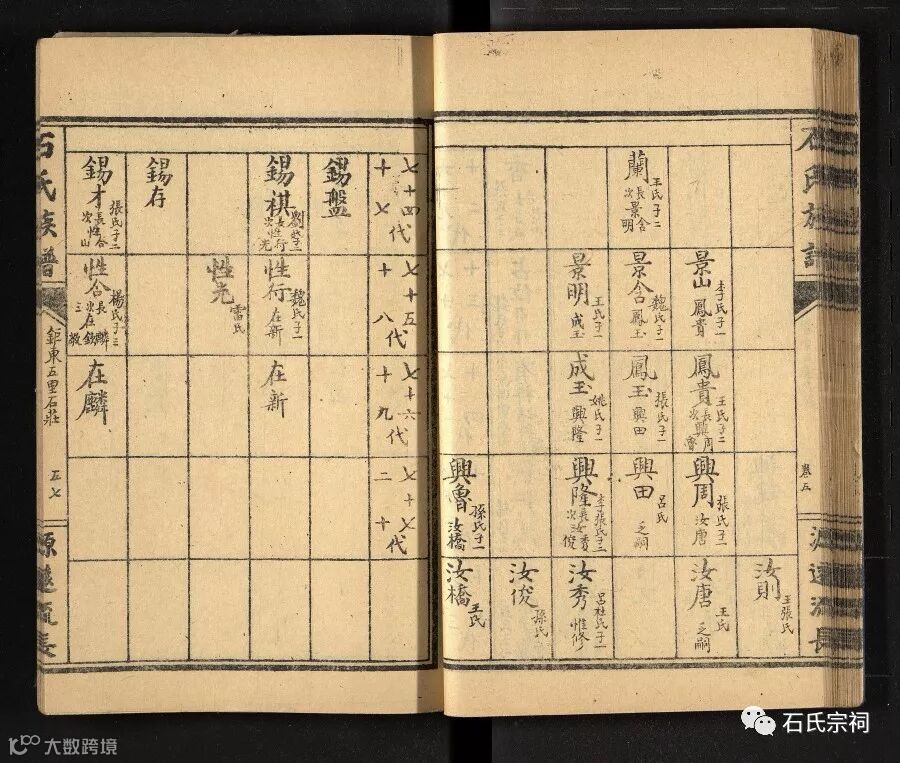 石氏族譜
卷五
源遠流長
汝則 王張氏
景山 李氏子一 鳳貴
鳳貴 王氏子二 長興周 次興魯
興周 張氏子一 汝唐
汝唐 王氏 乏嗣
蘭 王氏子二 長景含 次景明
景含 魏氏子一 鳳玉
鳳玉 張氏子一 興田
興田 呂氏 乏嗣
景明 王氏子一 成玉
成玉 姚氏子一 興隆
興隆 李張氏子二 長汝秀 次汝俊
汝秀 呂杜氏子一 惟修
汝俊 孫氏
興魯 孫氏子一 汝橋
汝橋 王氏
七十四代 十七
七十五代 十八
七十六代 十九
七十七代 二十
錫盤
錫祺 劉氏子二 長性行 次性光
性行 魏氏子一 在新
在新
性光 雷氏
錫存
錫才 張氏子二 長性合 次性山
性合 楊氏子三 長在麟 次在欽 三在教
在麟
石氏族譜
鉅東五里石莊
五七
源遠流長
石氏宗祠
大数跨境